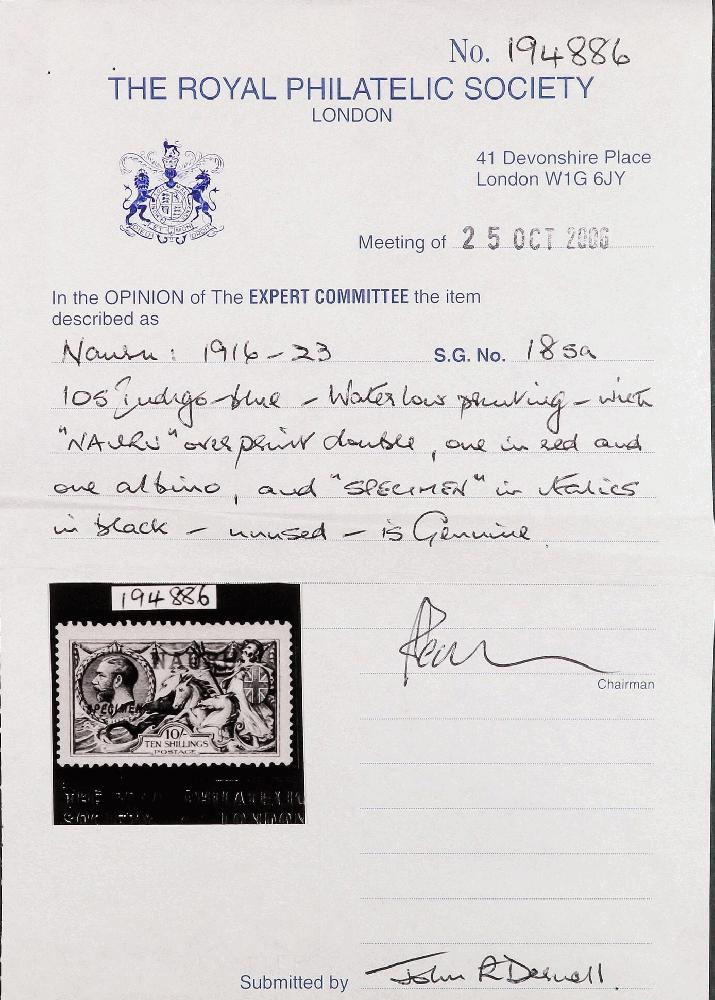 No. 194886
THE ROYAL PHILATELIC SOCIETY
LONDON
41 Devonshire Place
London W1G 6JY
Meeting of 25 OCT 2006
In the OPINION of The EXPERT COMMITTEE the item
described as
Nauru: 1916-23 S.G. No. 18sa
10s Indigo-blue - Waterlow printing - with
"NAURU" overprint double, one in red and
one albino, and "SPECIMEN" in italics
in black - unused - is Genuine
194886
NAURU
SPECIMEN
10/-
TEN SHILLINGS
POSTAGE
Chairman
Submitted by John R